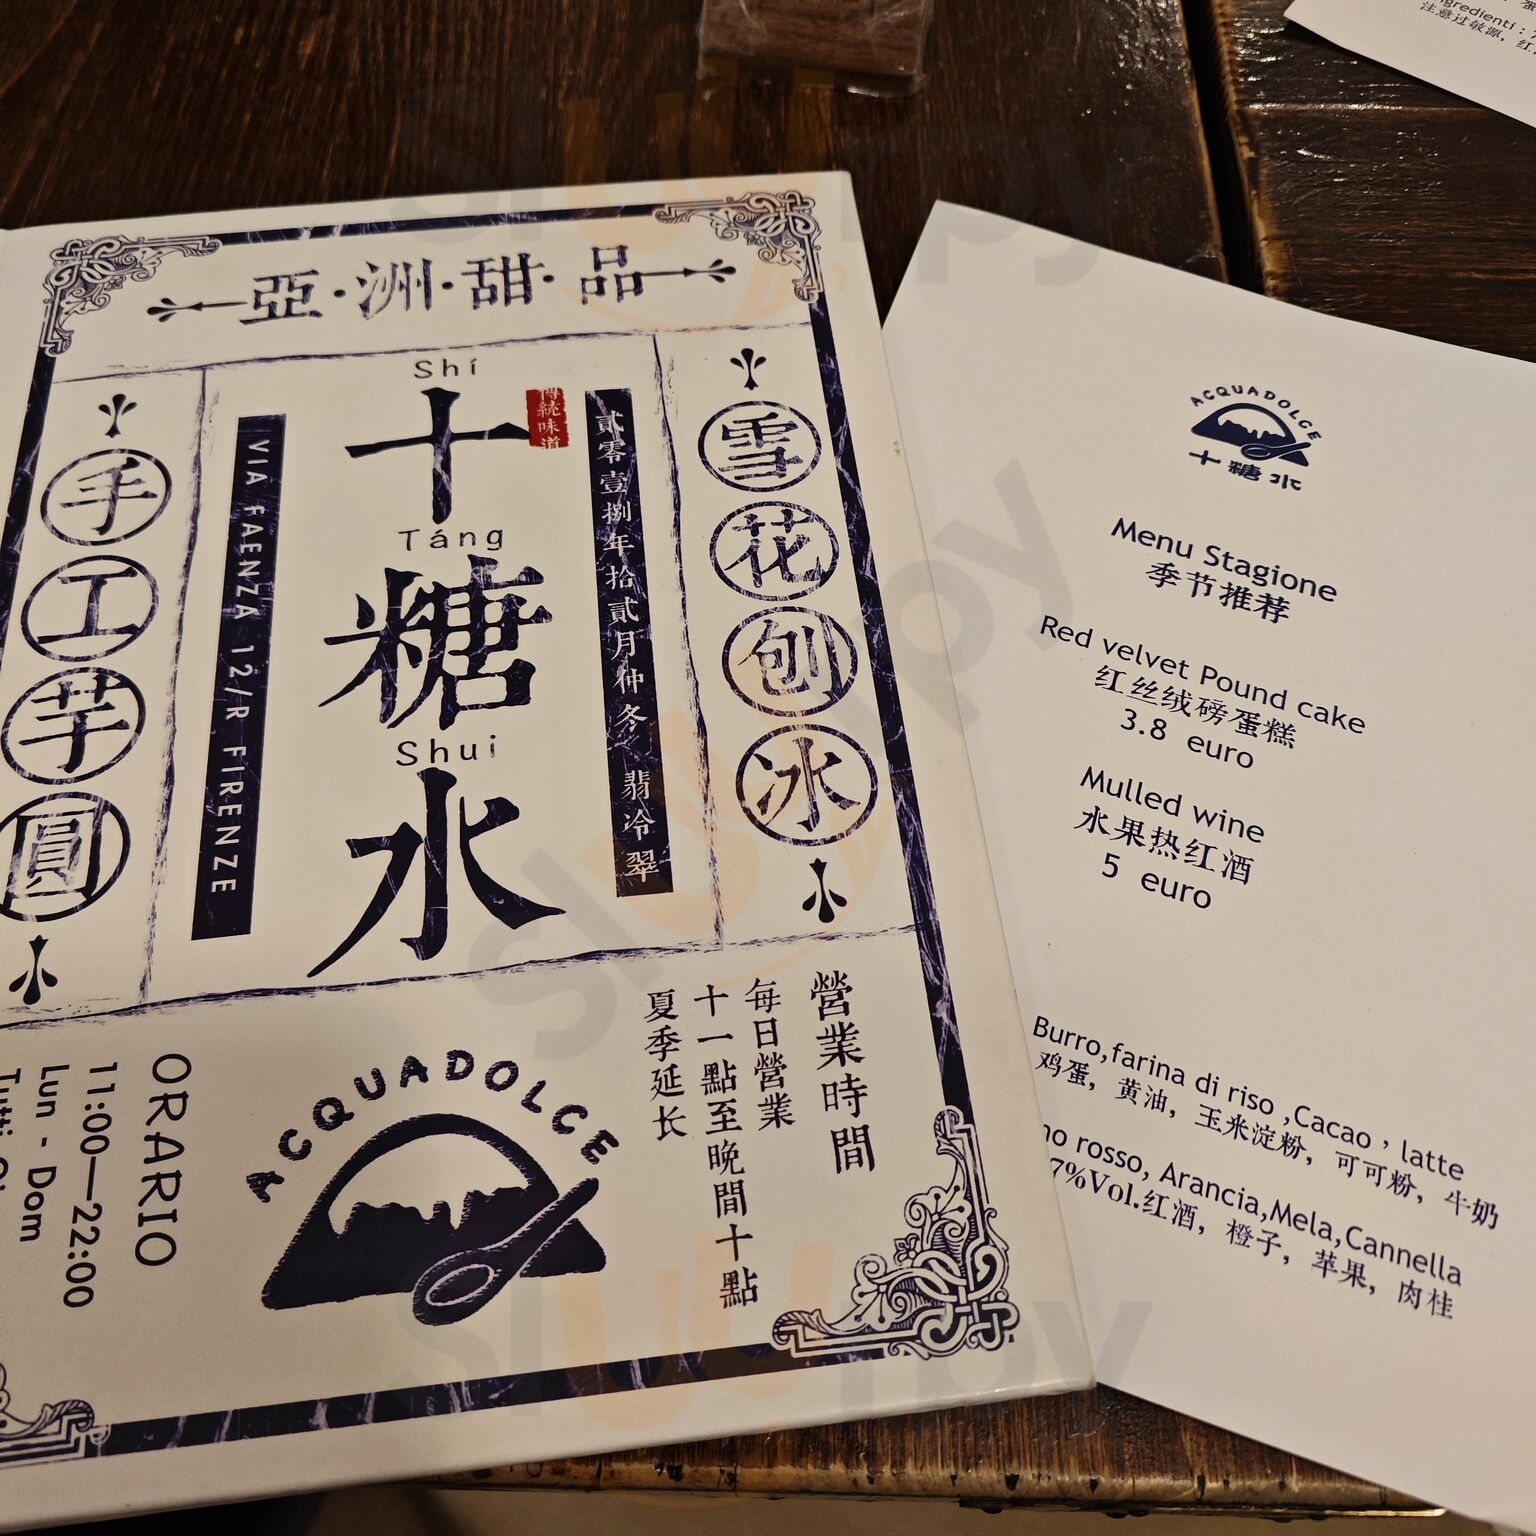 亞·洲·甜·品
手工芋圓
VIA FAENZA 12/R FIRENZE
Shí
十
Táng
糖
Shuí
水
傳統味道
貳零壹捌年拾貳月仲冬 翡冷翠
雪花刨冰
營業時間
每日營業
十一點至晚間十點
夏季延长
ACQUADOLCE
ORARIO
11:00—22:00
Lun - Dom
Tutti
ACQUADOLCE
十糖水
Menu Stagione
季节推荐
Red velvet Pound cake
红丝绒磅蛋糕
3.8 euro
Mulled wine
水果热红酒
5 euro
Burro,farina di riso ,Cacao , latte
鸡蛋，黄油，玉米淀粉，可可粉，牛奶
rosso, Arancia,Mela,Cannella
7%Vol.红酒，橙子，苹果，肉桂
ngredienti :
注意过敏源，红
sluurpy
sluurpy
sluurpy